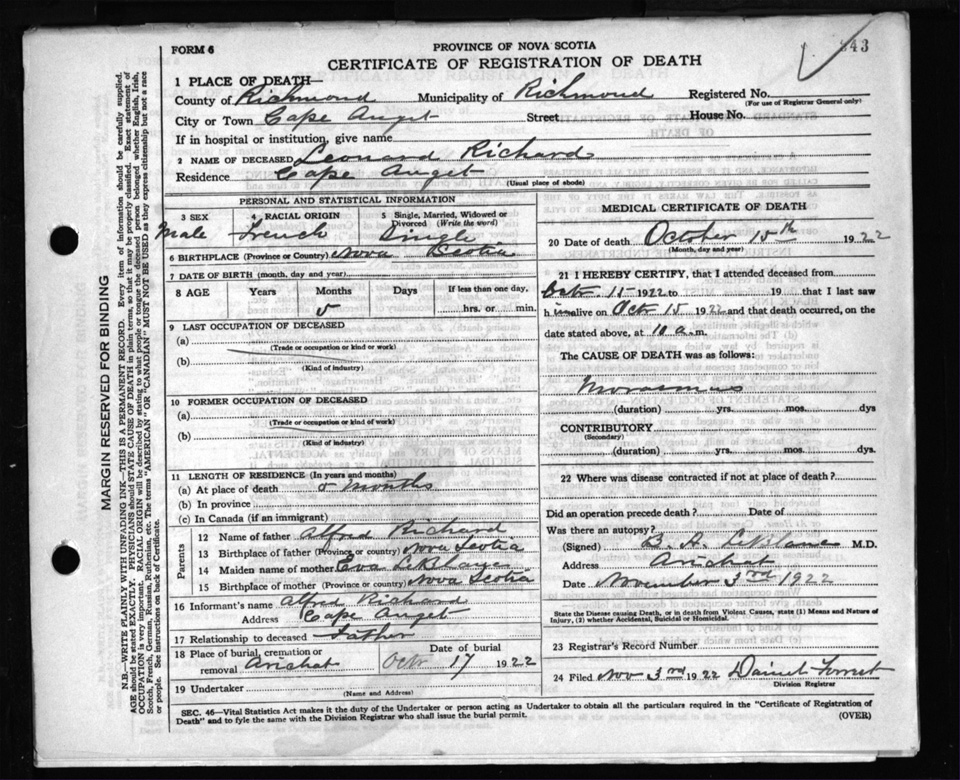 FORM 6
PROVINCE OF NOVA SCOTIA
43
CERTIFICATE OF REGISTRATION OF DEATH
MARGIN RESERVED FOR BINDING
N.B.—WRITE PLAINLY WITH UNFADING INK—THIS IS A PERMANENT RECORD. Every item of information should be carefully supplied.
AGE should be stated EXACTLY. PHYSICIANS should STATE CAUSE OF DEATH in plain terms, so that it may be properly classified. Exact statement of
OCCUPATION is very important. RACIAL ORIGIN will be described by stating to what people or tongue the deceased person belonged whether English, Irish,
Scotch, French, German, Russian, Ruthenian, etc. The terms "AMERICAN" OR "CANADIAN" MUST NOT BE USED as they express citizenship but not a race
or people. See instructions on back of Certificate.
1 PLACE OF DEATH—
County of Richmond Municipality of Richmond Registered No.
(For use of Registrar General only)
City or Town Cape Auget Street House No.
If in hospital or institution, give name
2 NAME OF DECEASED Leonard Richard
Residence Cape Auget
(Usual place of abode)
PERSONAL AND STATISTICAL INFORMATION
3 SEX 4 RACIAL ORIGIN 5 Single, Married, Widowed or Divorced (Write the word)
Male French Single
6 BIRTHPLACE (Province or Country) Nova Scotia
7 DATE OF BIRTH (month, day and year)
8 AGE Years Months Days If less than one day,
5 hrs. or min.
9 LAST OCCUPATION OF DECEASED
(a)
(Trade or occupation or kind or work)
(b)
(Kind of industry)
10 FORMER OCCUPATION OF DECEASED
(a)
(Trade or occupation or kind of work)
(b)
(Kind of industry)
11 LENGTH OF RESIDENCE (In years and months)
(a) At place of death 5 months
(b) In province
(c) In Canada (if an immigrant)
Parents
12 Name of father Alfred Richard
13 Birthplace of father (Province or country) Nova Scotia
14 Maiden name of mother Eva LeBlanc
15 Birthplace of mother (Province or country) Nova Scotia
16 Informant's name Alfred Richard
Address Cape Auget
17 Relationship to deceased Father
18 Place of burial, cremation or removal Arichat Date of burial Octr 17 1922
19 Undertaker
(Name and Address)
MEDICAL CERTIFICATE OF DEATH
20 Date of death October 15th 1922
(Month, day and year)
21 I HEREBY CERTIFY, that I attended deceased from
1922 to 19 that I last saw
him alive on Octr 15 1922 and that death occurred, on
date stated above, at 10 a.m.
The CAUSE OF DEATH was as follows:
Morasmus
(duration) yrs. mos. dys
CONTRIBUTORY
(Secondary)
(duration) yrs. mos. dys.
22 Where was disease contracted if not at place of death?
Did an operation precede death? Date of
Was there an autopsy?
(Signed) B. A. LeBlanc M.D.
Address Arichat
Date November 3rd 1922
State the Disease causing Death, or in death from Violent Causes, state (1) Means and Nature of
Injury, (2) whether Accidental, Suicidal or Homicidal.
23 Registrar's Record Number
24 Filed Nov 3rd 1922 Daniel
Division Registrar
SEC. 46—Vital Statistics Act makes it the duty of the Undertaker or person acting as Undertaker to obtain all the particulars required in the "Certificate of Registration of
Death" and to fyle the same with the Division Registrar who shall issue the burial permit.
(OVER)